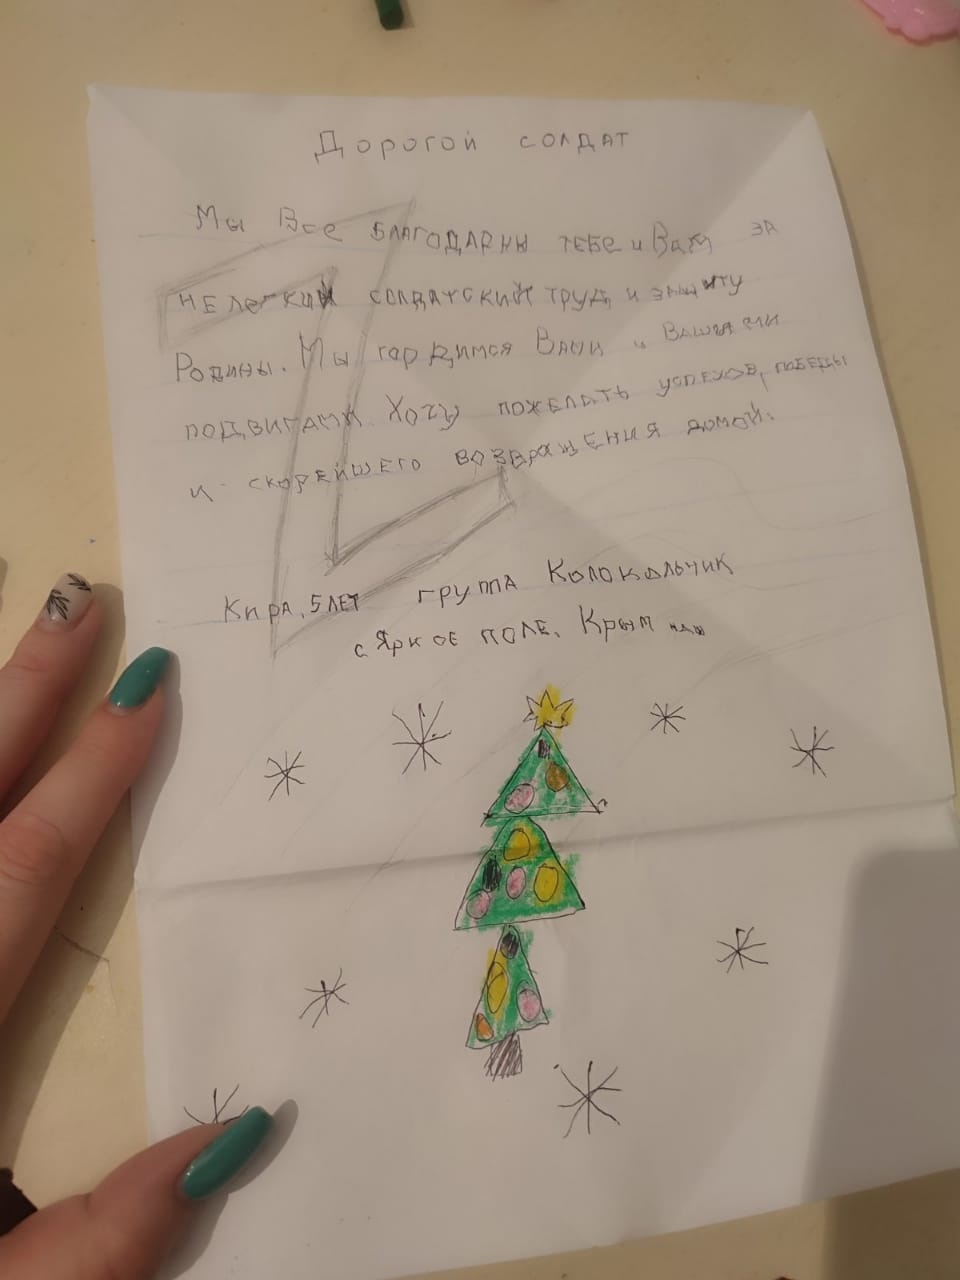 Дорогой солдат
Мы Все благодарны тебе и Вам за
не легкий солдатский труд и защиту
Родины. Мы гордимся Вами и Вашеми
подвигами. Хочу пожелать успехов, победы
и скорейшего возвражения домой.
Кира, 5 лет группа Колокольчик
с Яркое поле. Крым наш
Z